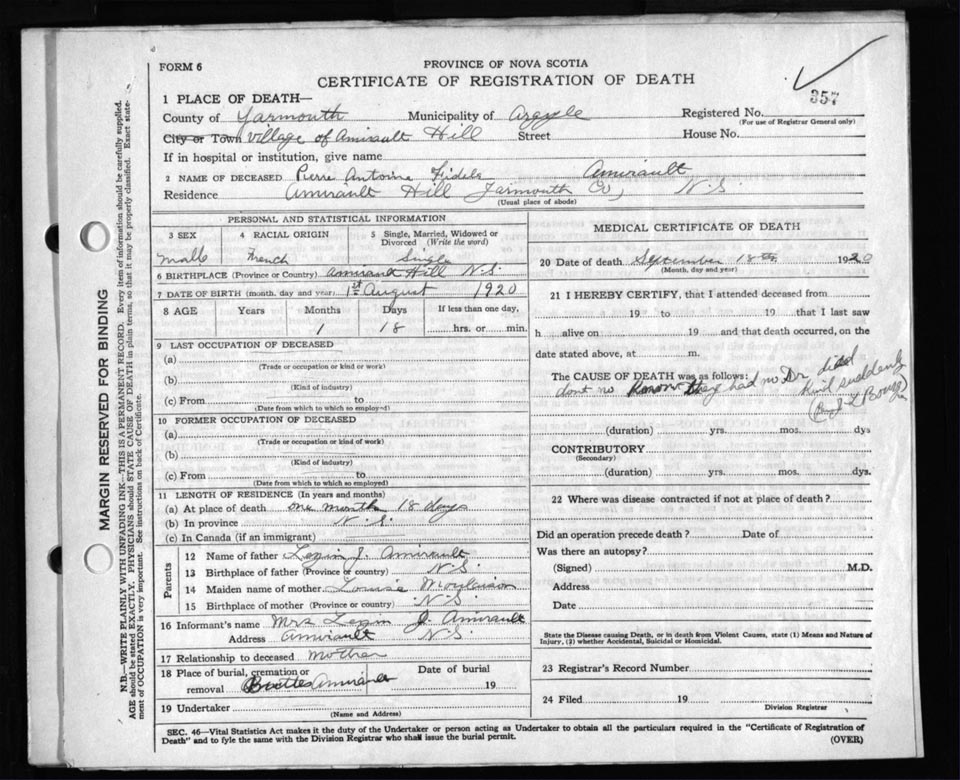 FORM 6
PROVINCE OF NOVA SCOTIA
CERTIFICATE OF REGISTRATION OF DEATH
357
1 PLACE OF DEATH—
County of Yarmouth Municipality of Argyle Registered No.
(For use of Registrar General only)
City or Town Village of Amirault Hill Street House No.
If in hospital or institution, give name
2 NAME OF DECEASED Pierre Antoine Fidele Amirault
Residence Amirault Hill Yarmouth Co, N.S.
(Usual place of abode)
PERSONAL AND STATISTICAL INFORMATION
3 SEX 4 RACIAL ORIGIN 5 Single, Married, Widowed or
Divorced (Write the word)
Male French Single
6 BIRTHPLACE (Province or Country) Amirault Hill N.S.
7 DATE OF BIRTH (month, day and year) 1st August 1920
8 AGE Years Months Days If less than one day,
1 18 hrs. or min.
9 LAST OCCUPATION OF DECEASED
(a)
(Trade or occupation or kind of work)
(b)
(Kind of industry)
(c) From to
(Date from which to which so employed)
10 FORMER OCCUPATION OF DECEASED
(a)
(Trade or occupation or kind of work)
(b)
(Kind of industry)
(c) From to
(Date from which to which so employed)
11 LENGTH OF RESIDENCE (In years and months)
(a) At place of death one month 18 days
(b) In province N.S.
(c) In Canada (if an immigrant)
Parents
12 Name of father J. Amirault
13 Birthplace of father (Province or country) N.S.
14 Maiden name of mother Louise
15 Birthplace of mother (Province or country) N.S.
16 Informant's name Mrs J. Amirault
Address Amirault N.S.
17 Relationship to deceased Mother
18 Place of burial, cremation or Date of burial
removal Amirault 19
19 Undertaker
(Name and Address)
MEDICAL CERTIFICATE OF DEATH
20 Date of death September 18th 1920
(Month, day and year)
21 I HEREBY CERTIFY, that I attended deceased from
19 to 19 that I last saw
h alive on 19 and that death occurred, on the
date stated above, at m.
The CAUSE OF DEATH was as follows:
dont no know they had no Dr died
suddenly
(duration) yrs. mos. dys
CONTRIBUTORY
(Secondary)
(duration) yrs. mos. dys.
22 Where was disease contracted if not at place of death?
Did an operation precede death? Date of
Was there an autopsy?
(Signed) M.D.
Address
Date
State the Disease causing Death, or in death from Violent Causes, state (1) Means and Nature of
Injury, (2) whether Accidental, Suicidal or Homicidal.
23 Registrar's Record Number
24 Filed 19
Division Registrar
SEC. 46—Vital Statistics Act makes it the duty of the Undertaker or person acting as Undertaker to obtain all the particulars required in the "Certificate of Registration of
Death" and to fyle the same with the Division Registrar who shall issue the burial permit.
(OVER)
MARGIN RESERVED FOR BINDING
N.B.—WRITE PLAINLY WITH UNFADING INK—THIS IS A PERMANENT RECORD. Every item of information should be carefully supplied.
AGE should be stated EXACTLY. PHYSICIANS should STATE CAUSE OF DEATH in plain terms, so that it may be properly classified. Exact state-
ment of OCCUPATION is very important. See instructions on back of Certificate.